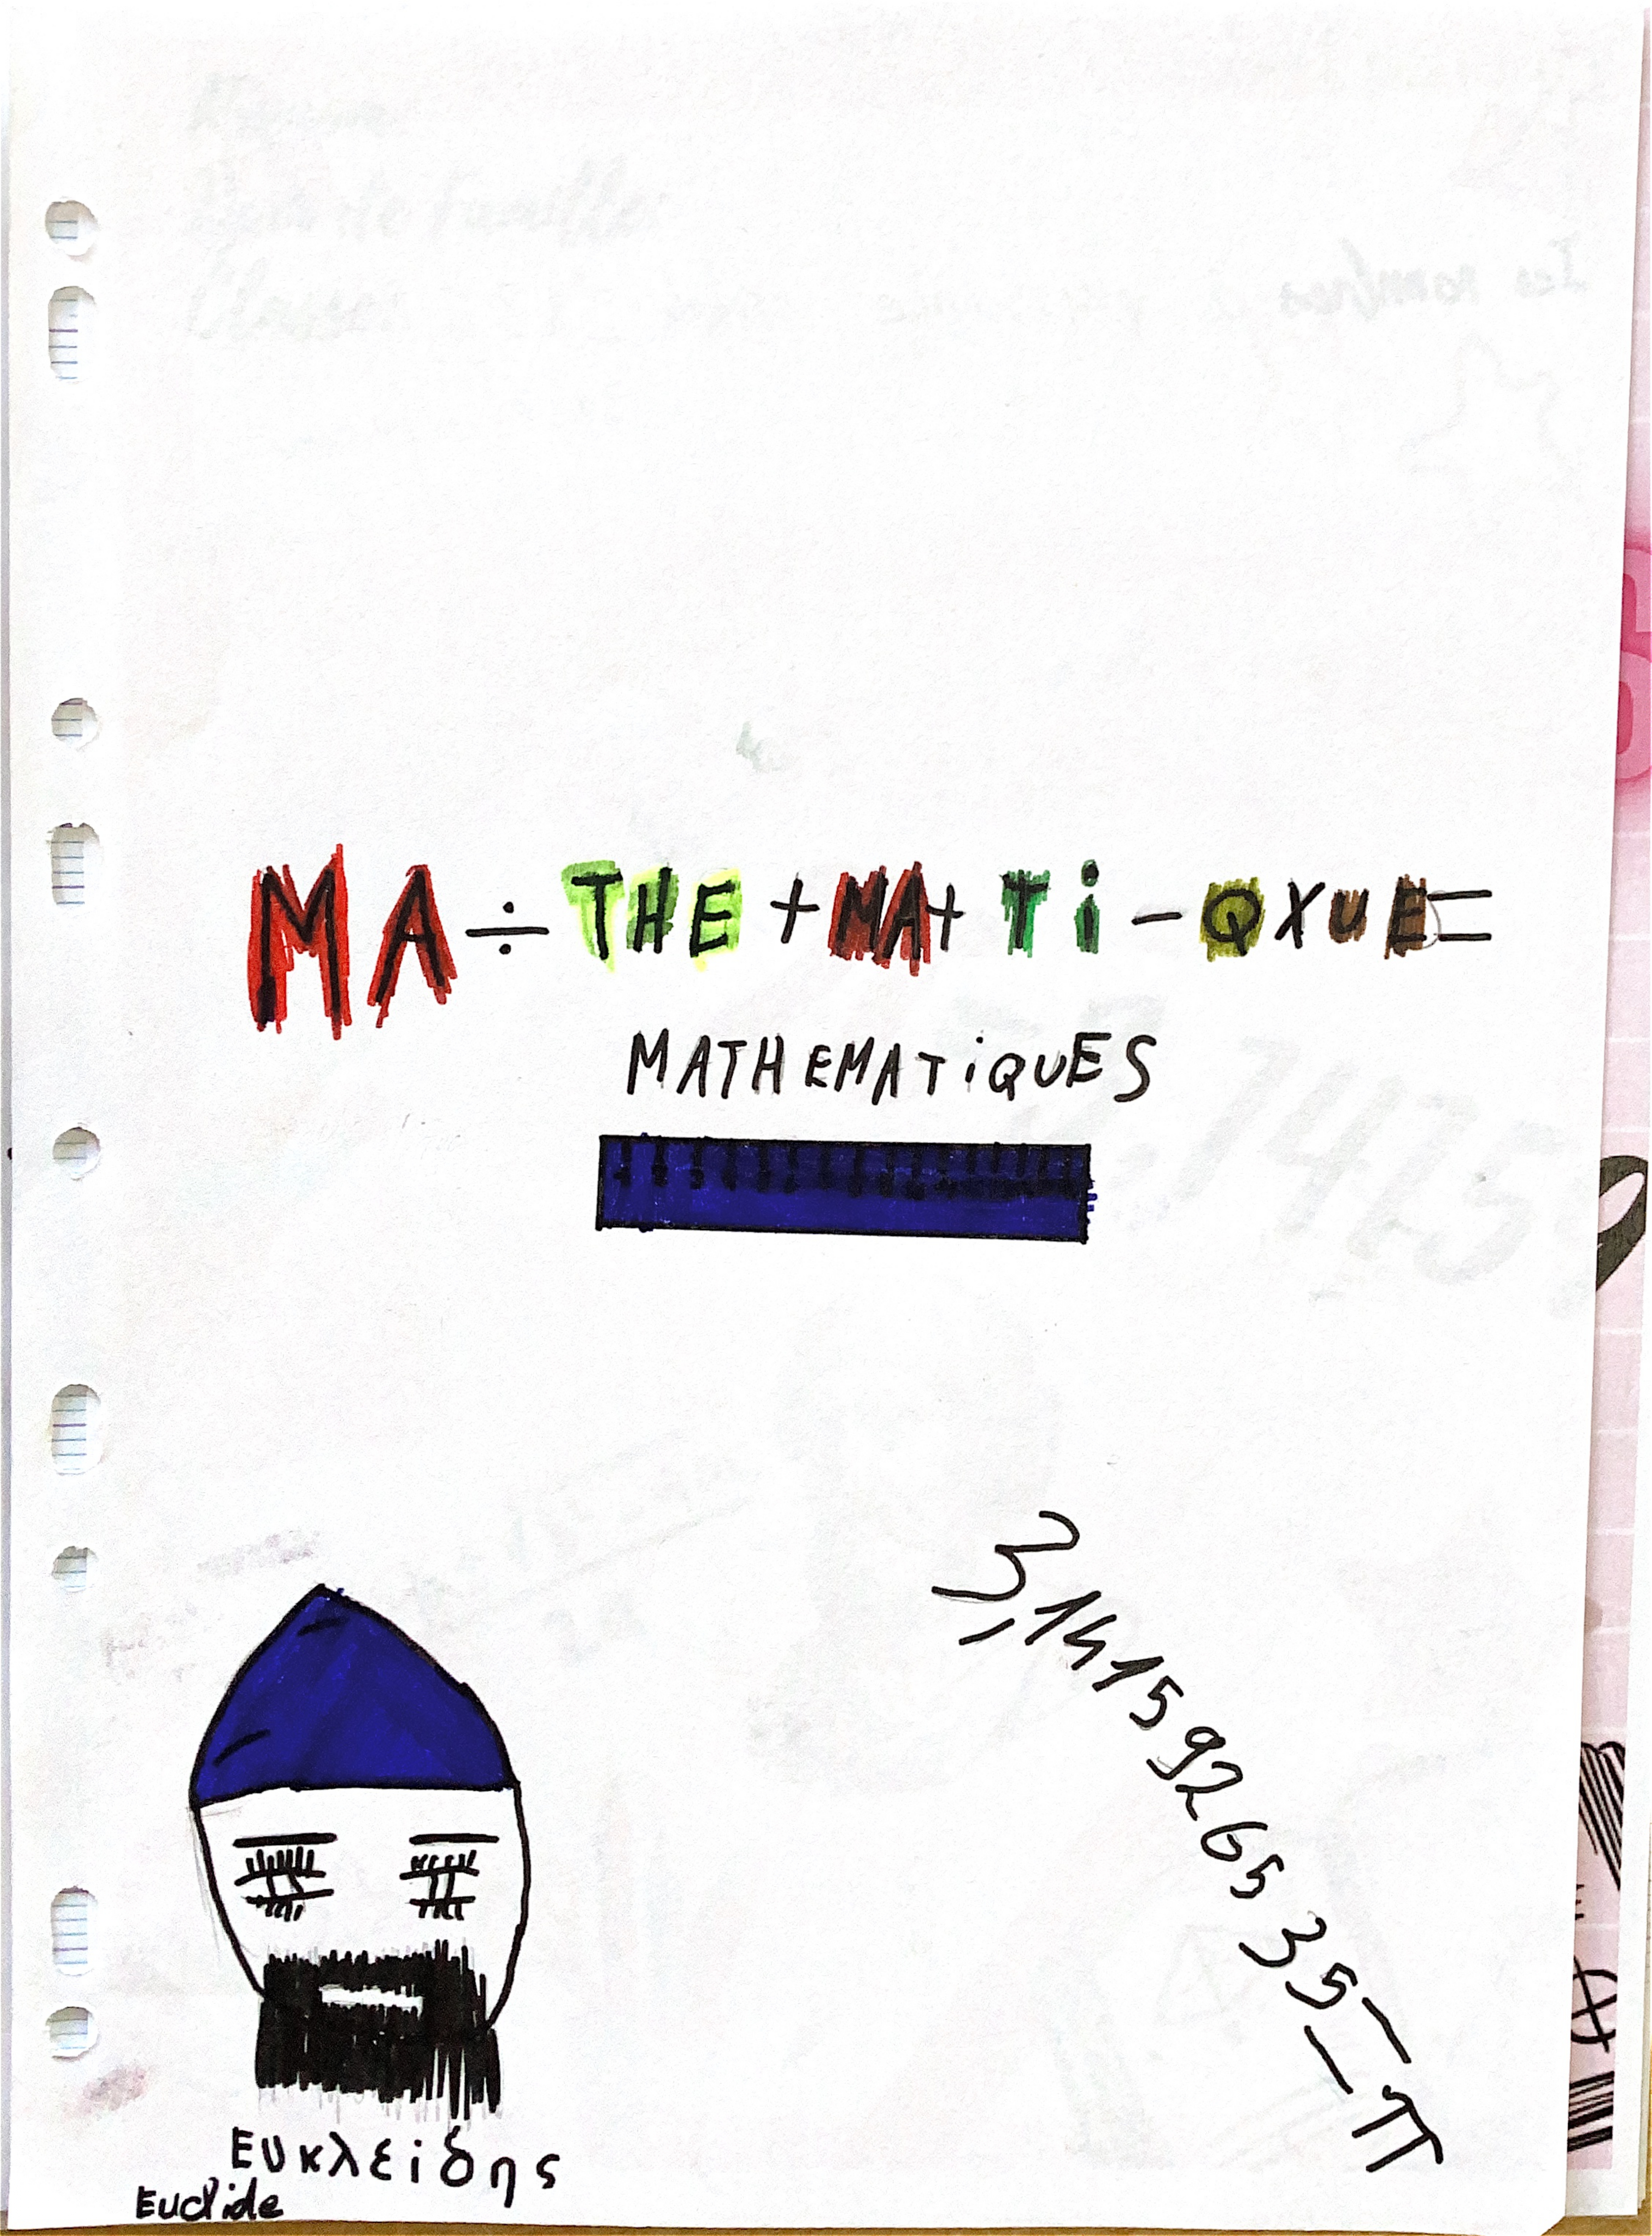 MA÷THE+MA+Ti-QXUE=
MATHEMATiQUES
3,14159265 35=π
Ευκλειδης
Euclide